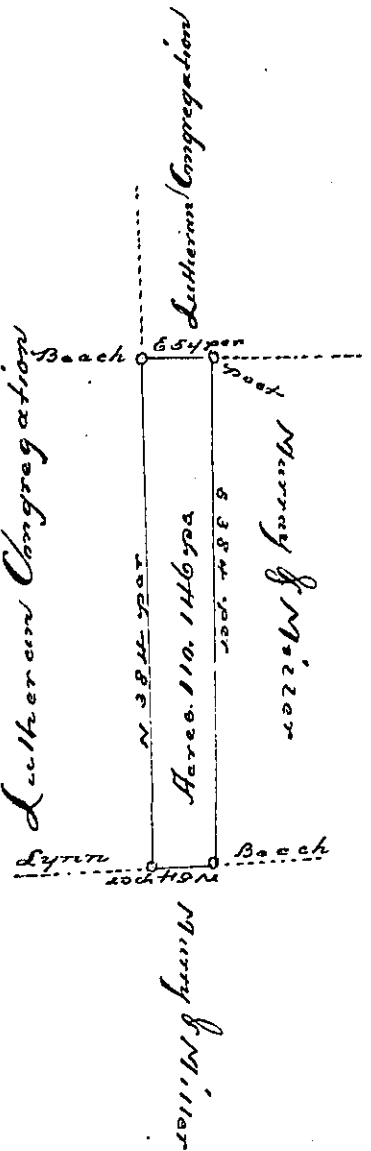 Lutheran Congregation
Lutheran Congregation
Beach
E 54 per
Post
N 384 per
Acres. 110. 146 ps
S 384 per
Murray & Miller
Lynn
W 54 per
Beach
Murry & Miller